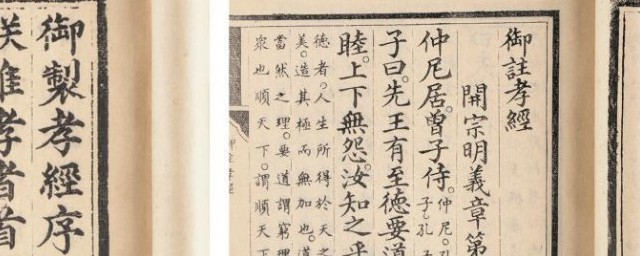 御註孝經
開宗明義章第
仲尼居。曾子侍。
仲尼。孔
子。孔子
子曰。先王有至德要道
睦。上下無怨。汝知之乎
德者。人生所得於天之
美。造其極而無加也。道
當然之理。要道謂窮理
眾也順天下。謂順天下
御製孝經序
朕惟孝者首